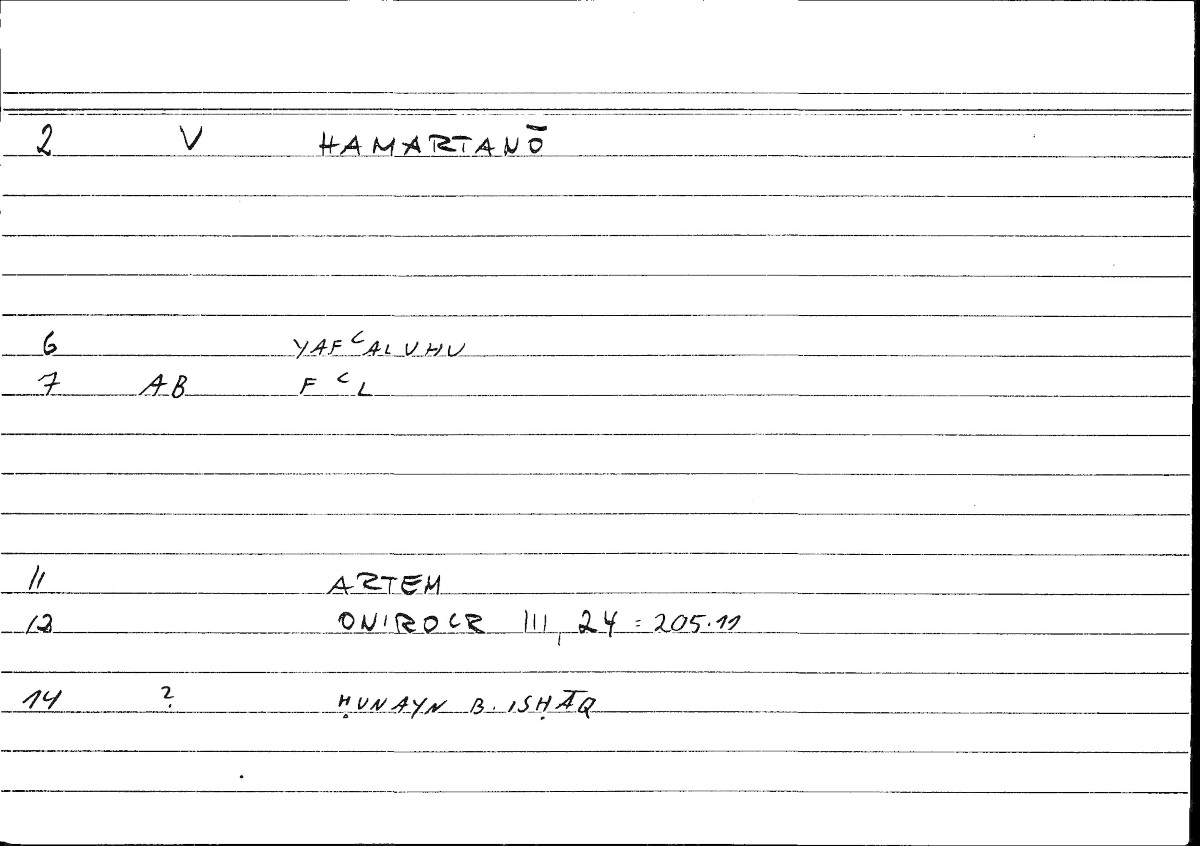 2 V HAMARTANŌ
6 YAFʿALUHU
7 AB FʿL
11 ARTEM
12 ONIROCR III, 24 = 205.11
14 ? ḤUNAYN B. ISḤĀQ